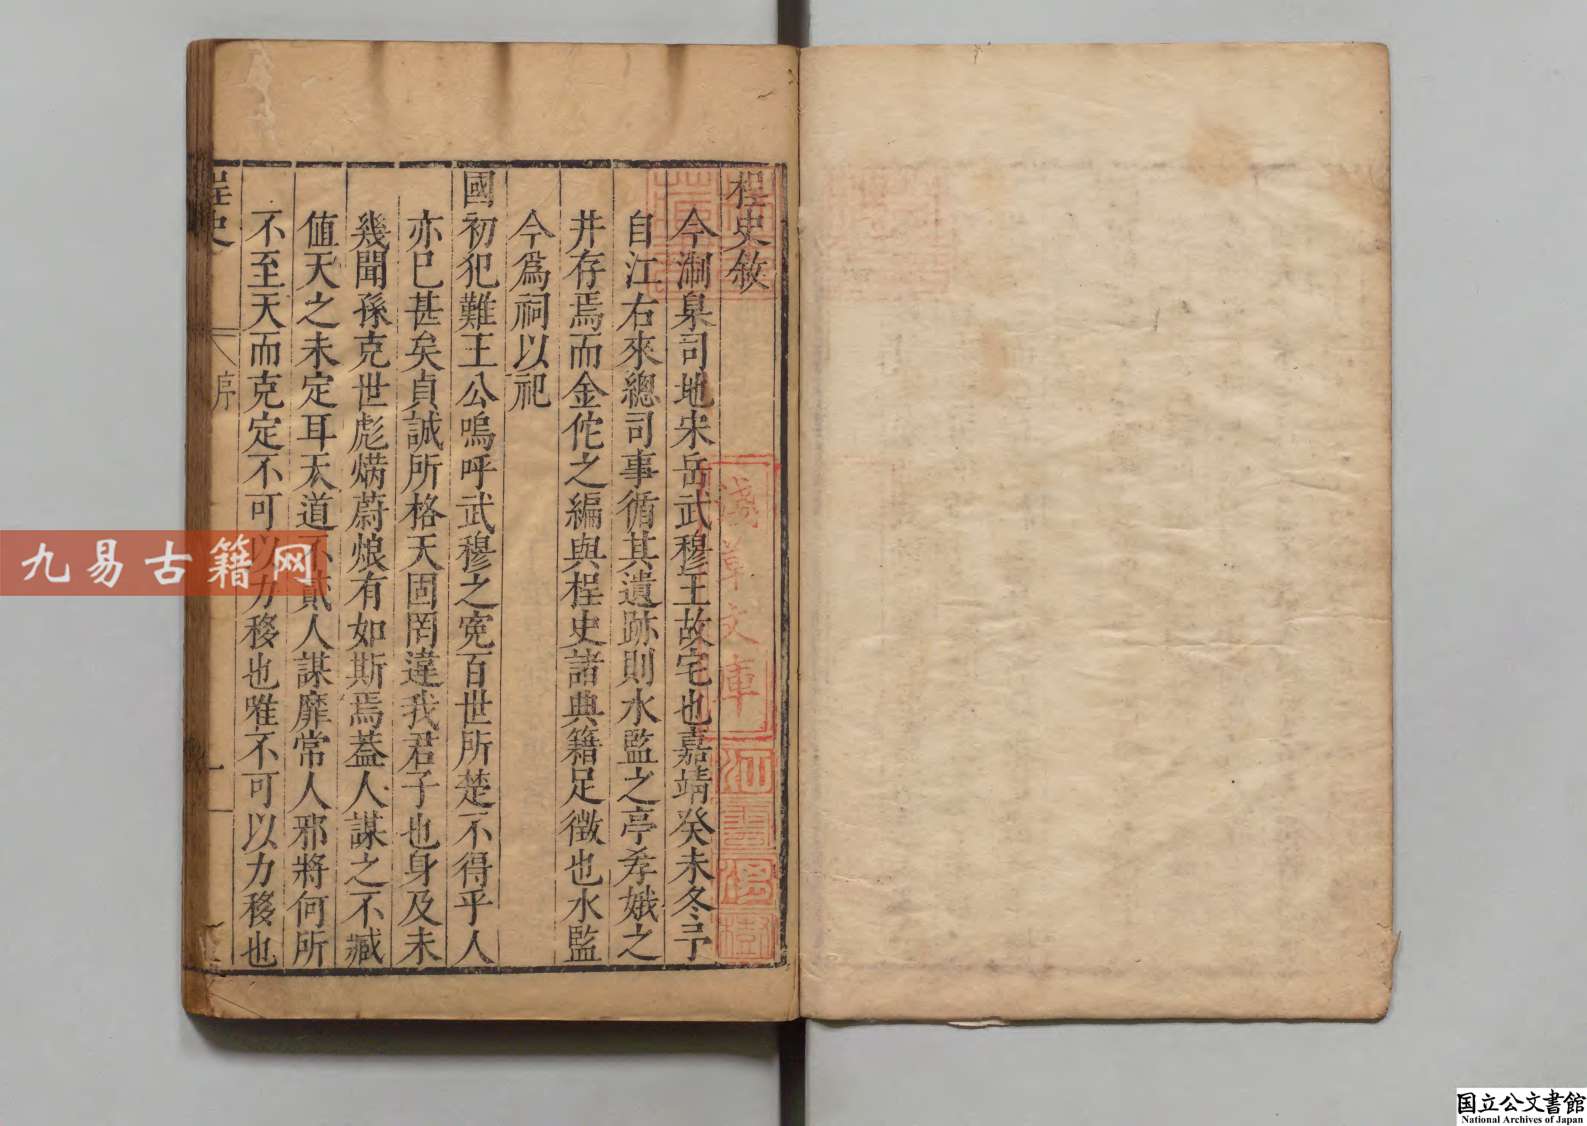 桯史敘
今淛臬司地宋岳武穆王故宅也嘉靖癸未冬予
自江右來總司事循其遺跡則水監之亭孝娥之
井存焉而金佗之編與桯史諸典籍足徵也水監
今爲祠以祀
國初犯難王公嗚呼武穆之寃百世所楚不得乎人
亦巳甚矣貞誠所格天固罔違我君子也身及未
幾聞孫克世彪炳蔚烺有如斯焉蓋人謀之不臧
値天之未定耳天道不貳人謀靡常人邪將何所
不至天而克定不可以力移也唯不可以力移也
桯史
序
一
淺草文庫
九易古籍网
国立公文書館
National Archives of Japan